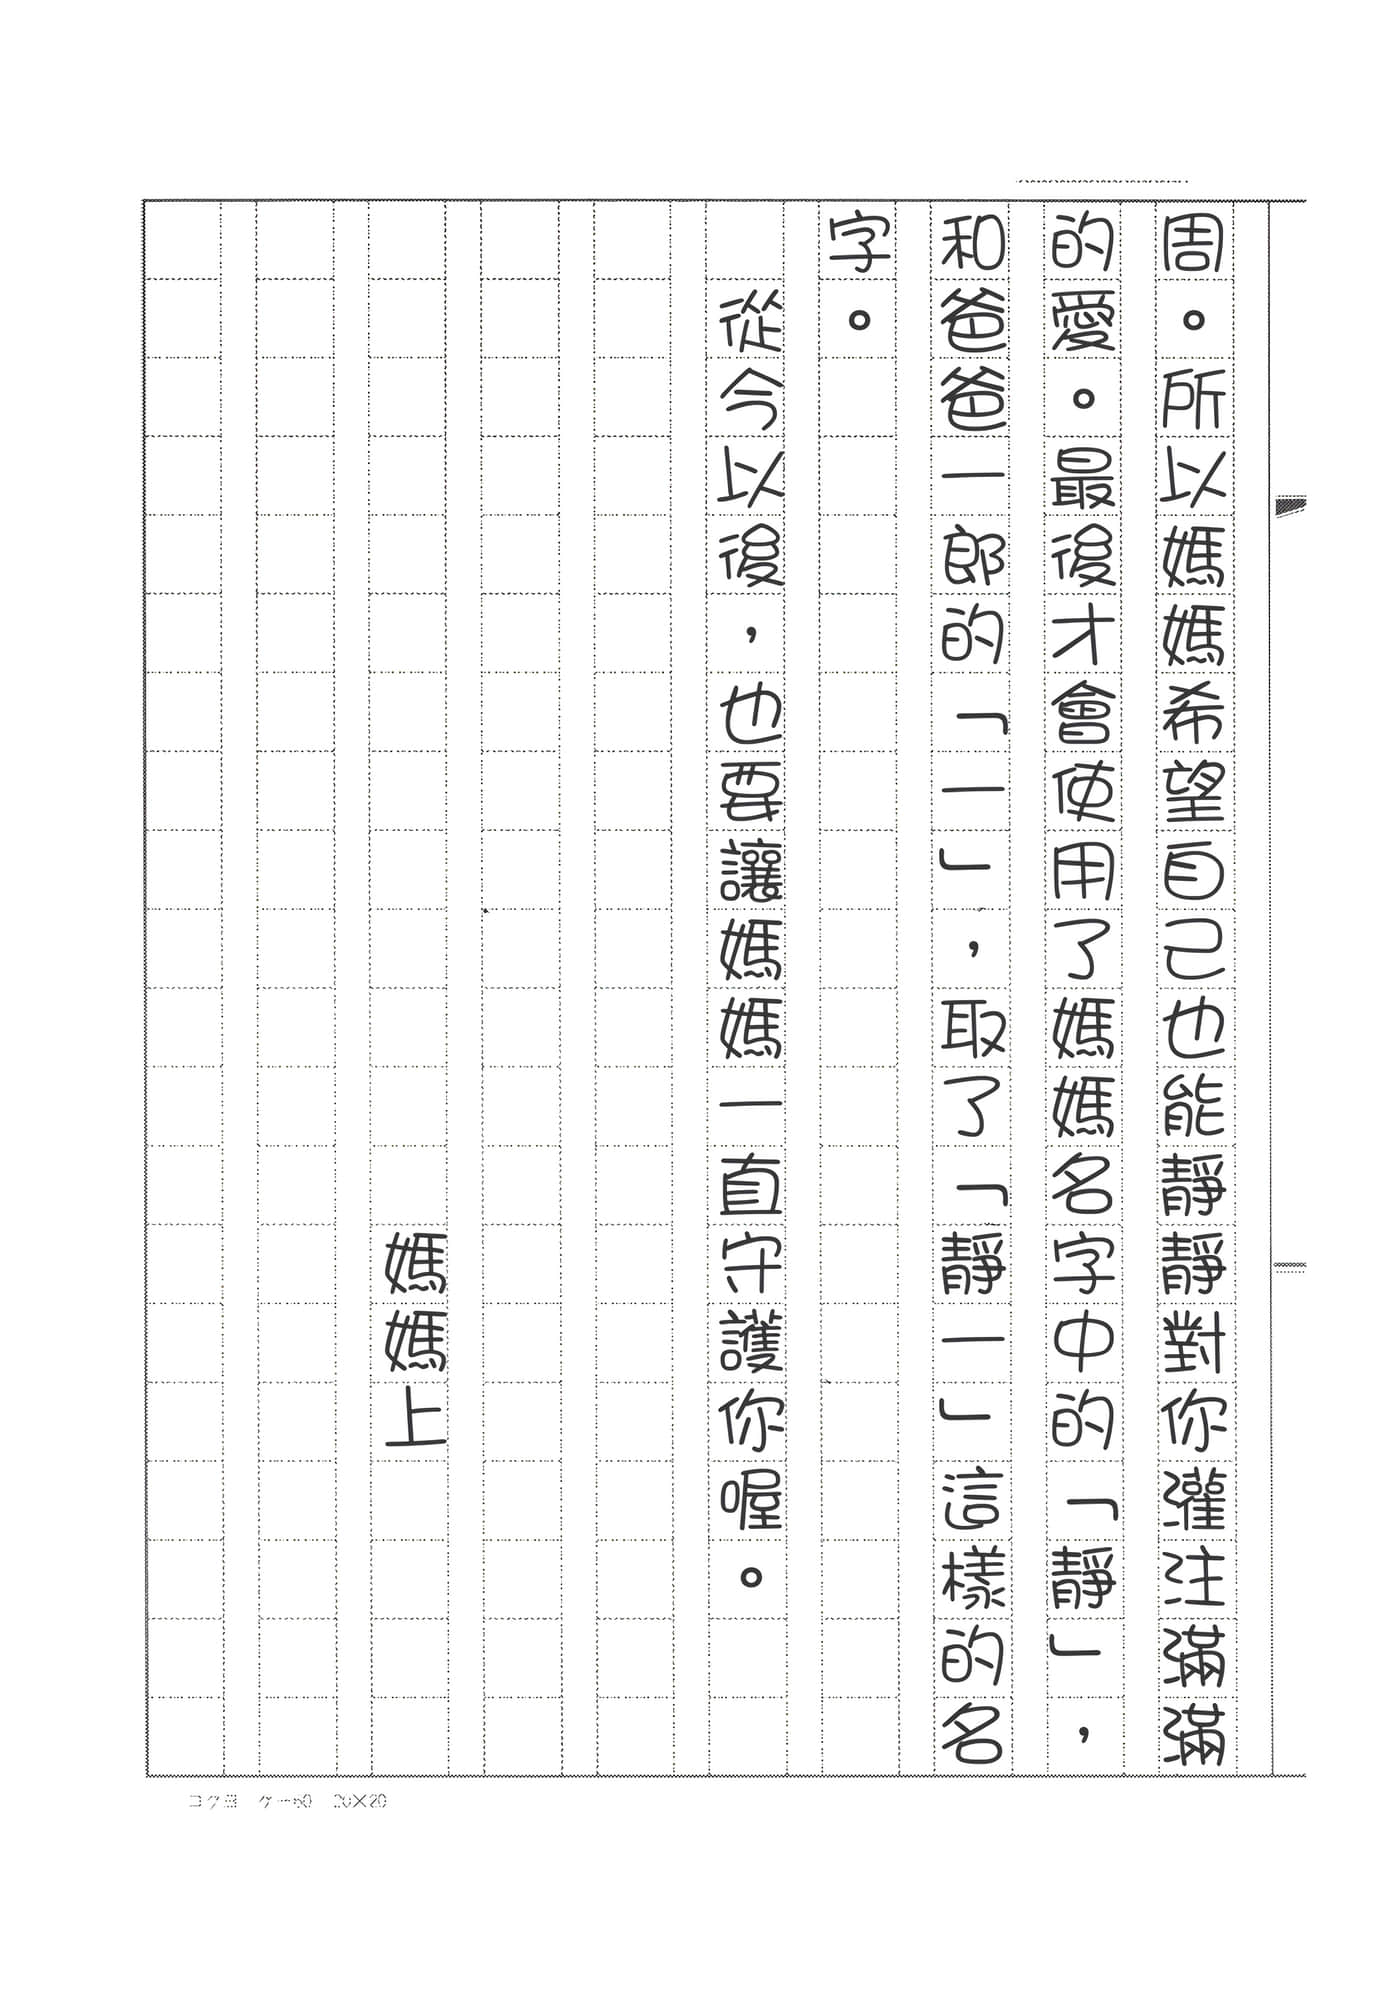 周。所以媽媽希望自己也能靜靜對你灌注滿滿
的愛。最後才會使用了媽媽名字中的「靜」，
和爸爸一郎的「一」，取了「靜一」這樣的名
字。
從今以後，也要讓媽媽一直守護你喔。
媽媽上
コクヨ ケー60 20×20